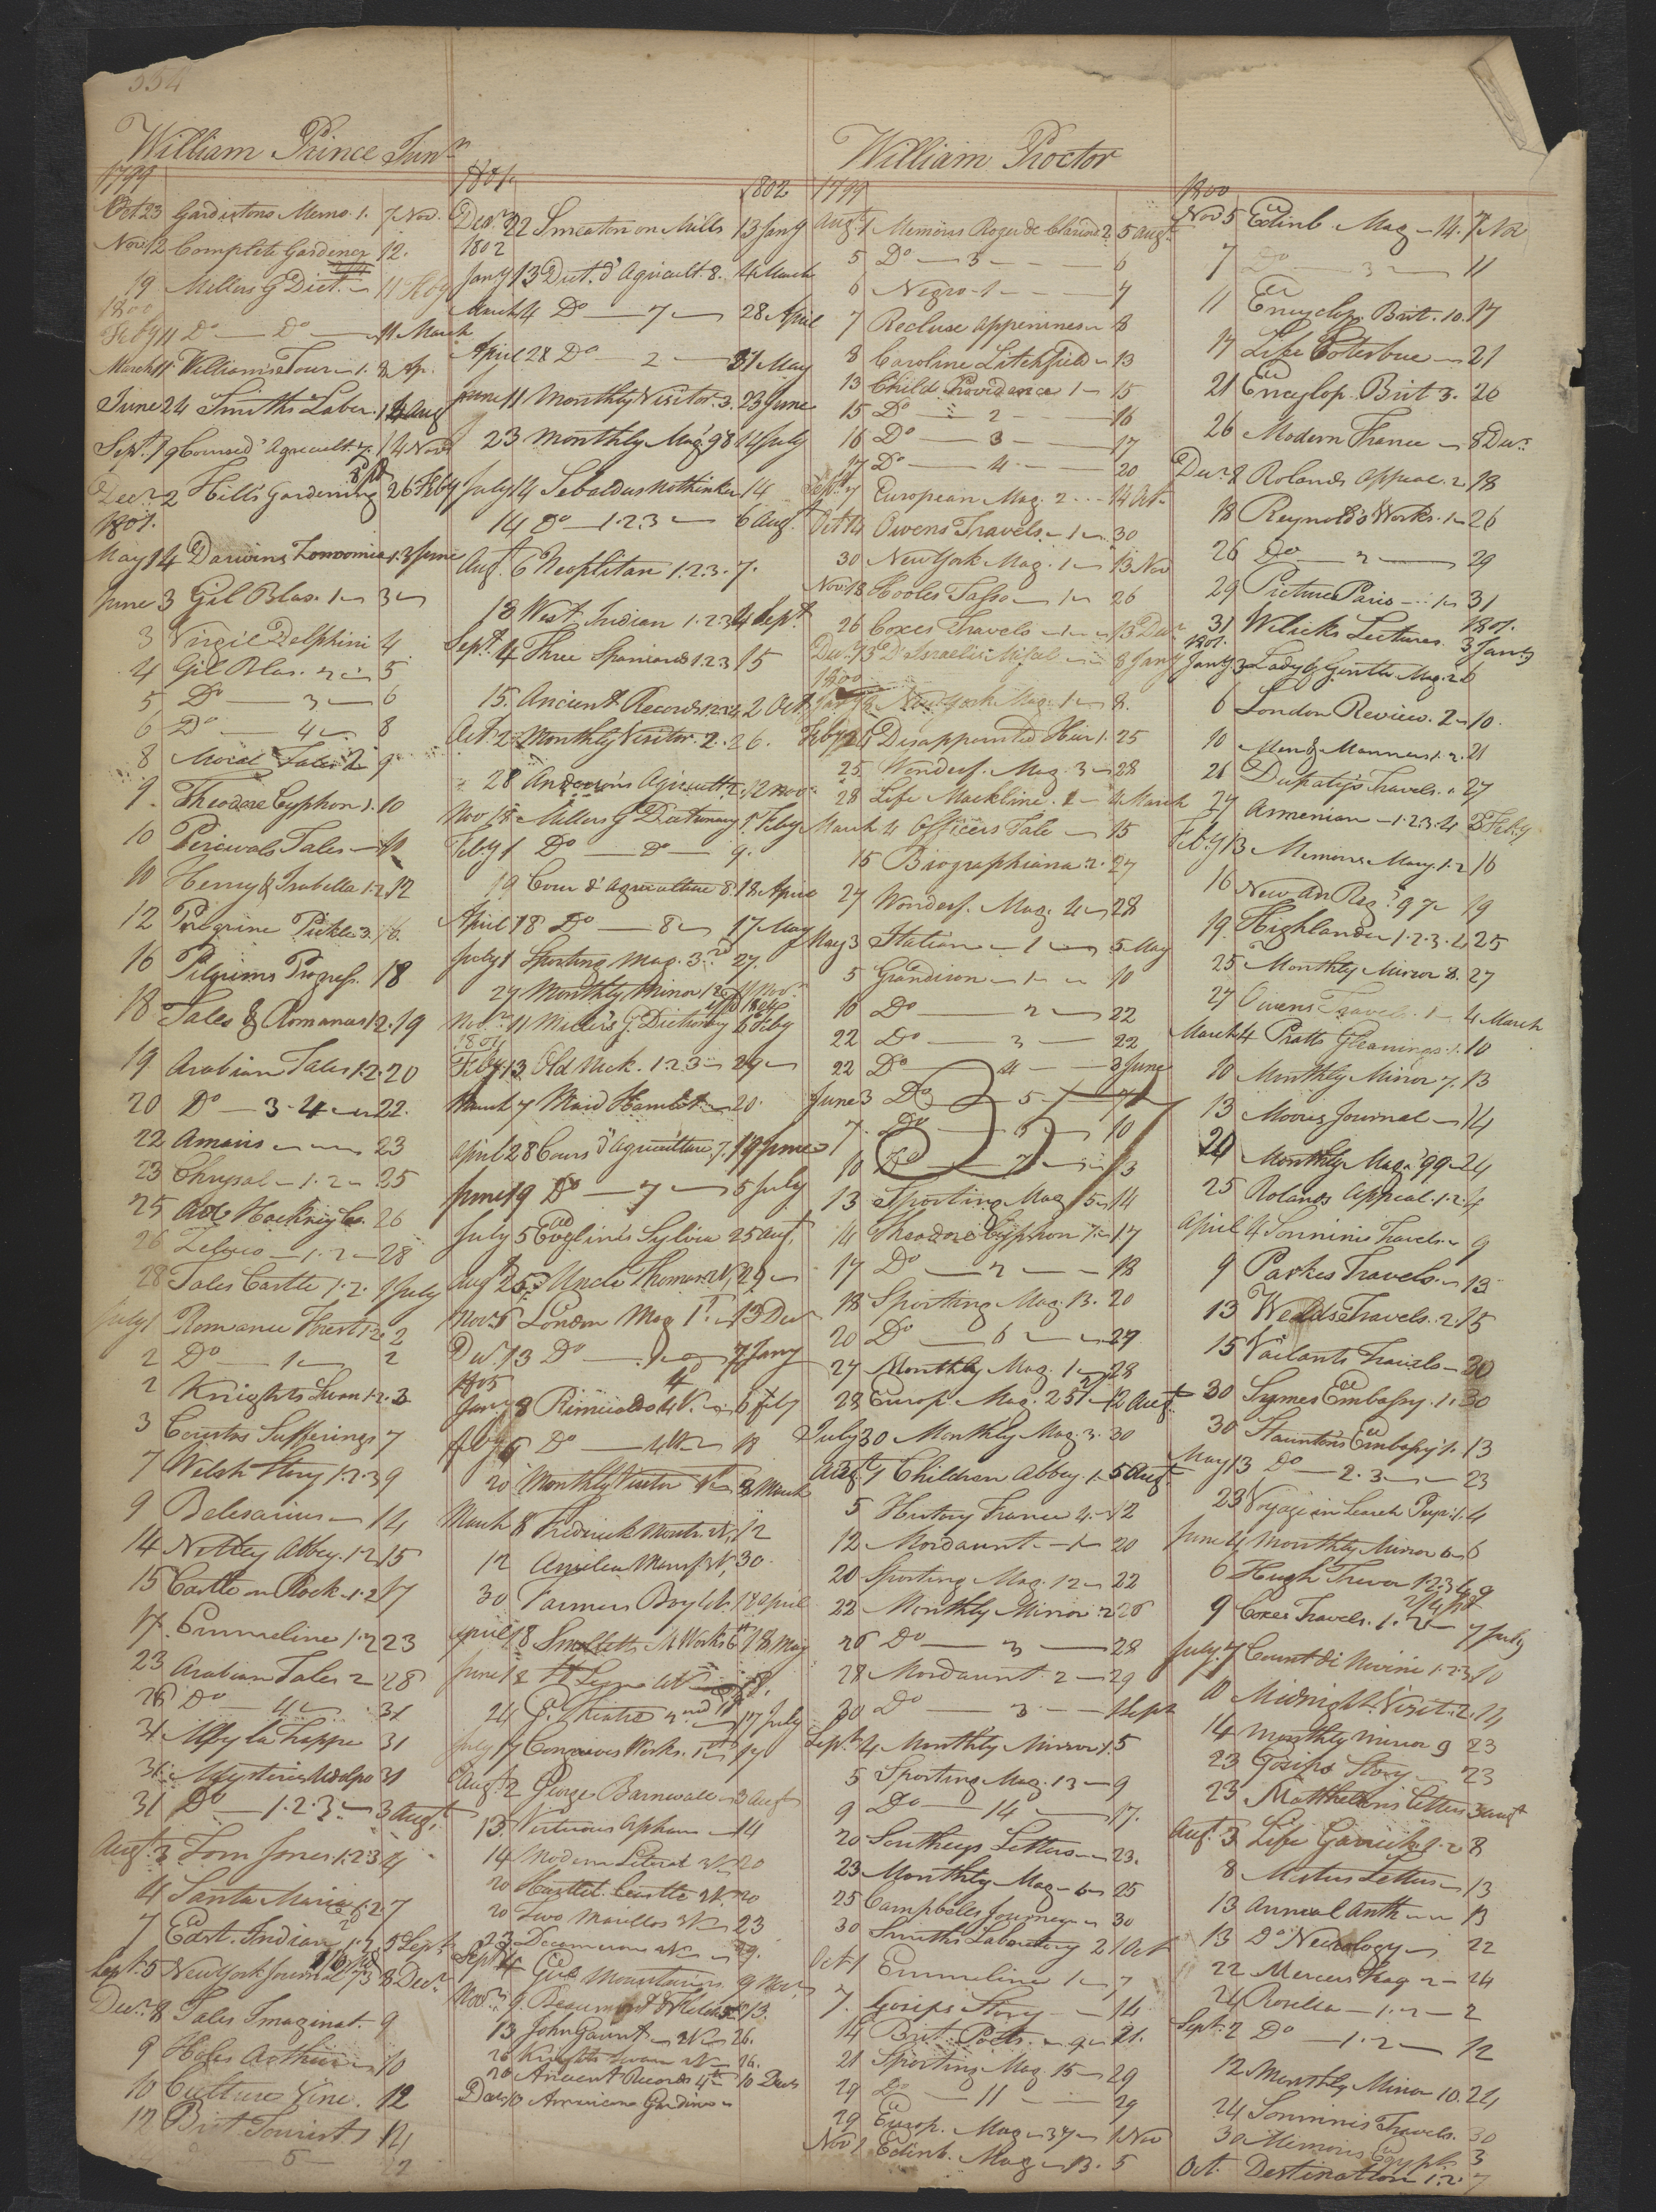 334
William Prince Junr
1799
Oct 23 Gardistons Memo. 1. 7 Nov.
Nov 12 Complete Gardener 12.
19 Millers G Dict. 11 Feby
1800
Feby 11 Do — Do — 11 March
March 11 Williams Tour — 1. 8 Ap.
June 24 Smiths Labor. 1 Aug
Sept. 19 Agricult. 7. 14 Novr
Decr 2 Hill's Gardening 26 Feby
1801.
May 14 Darwins Zoonomia 1. 3 June
June 3 Gil Blas. 1 3
3 Virgil Delphini 4
4 Gil Blas. 2 5
5 Do — 3 — 6
6 Do — 4 8
8 Moral Tales 2 9
9. Theodore Cyphon 1. 10
10 Percivals Tales — 10
10 Henry & Isabella 1.2. 12
12 Peregrine Pickle 3. 16.
16 Pilgrims Progress. 18
18 Tales & Romances 1.2. 19
19 Arabian Tales 1.2. 20
20 Do — 3.4 — 22.
22 Amavis 23
23 Chrysal — 1.2 — 25
25 Hackney Co. 26
26 Zeluco — 1.2 — 28
28 Tales Castle 1.2. 1 July
July 1 Romance Forest 1.2. 2
2 Do — 1 — 2
2 Knights Swan 1.2. 3
3 Courtos Sufferings 7
7 Welsh Story 1.2.3 9
9 Belesarius — 14
14 Netley Abbey. 1.2. 15
15 Castle on Rock. 1.2. 17
17. Emmeline 1.2 23
23 Arabian Tales 2 28
28 Do — 4 — 31
31 Abby la Trappe 31
31 Mysteries Udolpo 31
31 Do — 1.2.3. — 3 Augt.
Augt. 3 Tom Jones 1.2.3 4
4 Santa Maria 1.2. 7
7 East. Indian 1.2 5 Sept
Sept. 5 New York Journ 8 Decr.
Decr. 8 Tales Imaginat. 9
9 Holes Arthur 10
10 Culture Vine. 12
12 Brit Tourist 1 14
— 5 — 22
1801. 1802
Decr. 22 Smeaton on Mills 13 Jany
1802
Jany 13 Dict. d' Agricult. 8. 4 March
March 4 Do — 7 — 28 April
April 28 Do — 2 — 31 May
June 11 Monthly Visitor. 3. 23 June
23 Monthly Mag. 98 14 July
July 14 Sebaldus Nothinker 14
14 Do — 1.2.3 — 6 Augt.
Augt. 6 Neoplitan 1.2.3. 7.
18 West Indian 1.2.3 4 Sept.
Sept. 4 Three Spaniards 1.2.3 15
15. Ancient Records 1.2.3.4. 2 Oct.
Oct. 2 Monthly Visitor. 2. 26.
28 Anderson's Agricult 2. 12 Novr.
Nov 15 Millers G Dictionary 1. Feby
Feby 1 Do — Do — 9.
19 Cour d' Agriculture 8 18 April
April 18 Do — 8 — 17 May
July 1 Sporting Mag. 3rd 27.
27 Monthly Mirror 12 11 Novr.
Novr. 11 Miller's G. Dictionary 6 Feby
1804
Feby 13 Old Nick. 1.2.3 29
March 7 Maid Hamlet 20.
April 28 Cours d'Agriculture 7. 19 June
June 19 Do — 7 — 5 July
July 5 Evelin's Sylvia 25 Augt.
Augt 25 Uncle Thomas 29
Nov. 6 London Mag 1st. 13 Decr
Decr. 13 Do — 1 — 7 Jany
1805
Jany 8 Rimualdo 4 V. 6 Feby
Feby 6 Do — 4 V 18
20 Monthly Visitor 8 March
March 8 Fredrick Montr. 12
12 Amelia Mansf 3 V, 30.
30 Farmers Boy 18 April
April 18 Smolletts Works 6th 18 May
June 18 St Leon 18.
24 Theatre 2nd 17 July
July 17 Congreves Works. 17
Augt. 2 George Barnwell 3 Augt
13. Virtuous Orphan — 14
14 Modern Literat 3 V 20
20 Hartlet Castle 20
20 Two Marillos 3 V 23
23 Decameron 2 V 29.
Sept. 4 Gil Mountains. 9 Novr.
Novr. 9 Beaumont & Fletch 13.
13 John Gaunt 2 V 26.
26 Knights Swan 2 V 26.
26 Ancient Records 4th 10 Decr
Decr. 10 American Gardiner
William Proctor
1799
Augt. 1 Memoirs Roger de Clarend 2. 5 Augt.
5 Do — 3 — 6
6 Negro 1 — 7
7 Recluse Appenines 8
8 Caroline Litchfield 13
13 Child Providence 1 — 15
15 Do — 2 — 16
16 Do — 3 — 17
17 Do — 4 — 20
Sept. 7 European Mag. 2 14 Oct.
Oct 14 Owens Travels. 1 30
30 New York Mag. 1 13 Nov
Nov. 13 Hooles Tasso 1 26
26 Coxes Travels 1 13 Decr
Decr. 13 D'Israelis Misel 8 Jany
1800
New York Mag. 1 8.
Feby 24 Disappointed Heir 1. 25
25 Wonderf. Mag. 3 28
28 Life Mackline. 4 March
March 4 Officers Tale — 15
15 Biographiana. 2. 27
27 Wonderf. Mag. 4 28
May 3 Station — 1 — 5 May
5 Grandison 1 10
10 Do — 2 — 22
22 Do — 3 — 22
22 Do — 4 — 3 June
June 3 Do — 5 — 7
7. Do — 6 — 10
10 Do — 7 — 13
13 Sporting Mag 5 14
14 Theodore Cyphon 1 17
17 Do — 2 — 18
18 Sporting Mag. 13. 20
20 Do — 6 — 27
27 Monthly Mag. 1 28
28 Europ. Mag. 25 12 Augt.
July 30 Monthly Mag. 3. 30
Augt. 1 Children Abbey. 1 5 Augt.
5 History France 4. 12
12 Mordaunt — 1 20
20 Sporting Mag. 12 22
22 Monthly Mirror 2 26
26 Do — 3 — 28
28 Mordaunt 2 — 29
30 Do — 3 — 1 Sept
Sept. 4 Monthly Mirror 1. 5
5 Sporting Mag. 13 — 9
9 Do — 14 — 17.
20 Southeys Letters 23.
23 Monthly Mag 6 25
25 Campbells Journey 30
30 Smiths Laboratory 2 1 Oct
Oct 1 Emmeline 1 7
7. Gosips Story — 14
14 Brit. Poets. 9 21.
21 Sporting Mag 15 29
29 Do — 11 — 29
29 Europ. Mag 37 1 Nov
Nov 1 Edinb. Mag 13. 5
1800
Nov 5 Edinb. Mag — 14. 7 No
7 Do — 3 — 11
11 Encyclop. Brit. 10. 17
17 Life Coterbue 21
21 Encyclop. Brit 3. 26
26 Modern France 8 Decr.
Decr. 8 Rolands Appeal. 2 18
18 Reynold's Works. 1 26
26 Do — 2 — 29
29 Picture Paris 1 31
31 Welicks Lectures. 3 Jany
1801. 1801.
Jany 3 Lady & Gentle Mag. 2 6
6 London Review. 2 10.
10 Men & Manners 1.2. 21
21 Dupaty's Travels. 27
27 Armenian — 1.2.3.4 Feby
Feby 13 Memoirs Mary. 1.2 16
16 New An Reg. 97 19
19. Highlander 1.2.3.4 25
25 Monthly Mirror 8. 27
27 Owens Travels. 1 4 March
March 4 Pratts Gleanings 1. 10
10 Monthly Mirror 7. 13
13 Moores Journal 14
Monthly Mag. 99 24
25 Rolands Appeal. 1.2. 4
April 4 Sonninis Travels 9
9 Parkes Travels 13
13 Welds Travels. 2. 15
15 Vailants Travels 30
30 Symes Embassy. 1. 30
30 Staunton's Embassy 1. 13
May 13 Do — 2.3 — 23
23 Voyage in Search Perou. 1. 4
June 4 Monthly Mirror 6 6
6 Hugh Trevor 1.2.3.4 9
9 Coxes Travels. 1.2 7 July
July 7 Count di Novini 1.2.3 10
10 Midnight Visit. 2. 14
14 Monthly Mirror 9 23
23 Gosips Story 23
23 Matthesons Letters 3 Augt
Augt. 3 Life Garrick 1.2 8
8 Letters 13
13 Annual Anth 13
13 Do Necrology 22
22 Mercers Mag 2 24
24 Rosella — 1.2 — 2
Sept. 2 Do — 1.2 — 12
12 Monthly Mirror 10. 24
24 Sonninis Travels. 30
30 Memoirs Egypt 3
Oct. Destination 1.2. 7